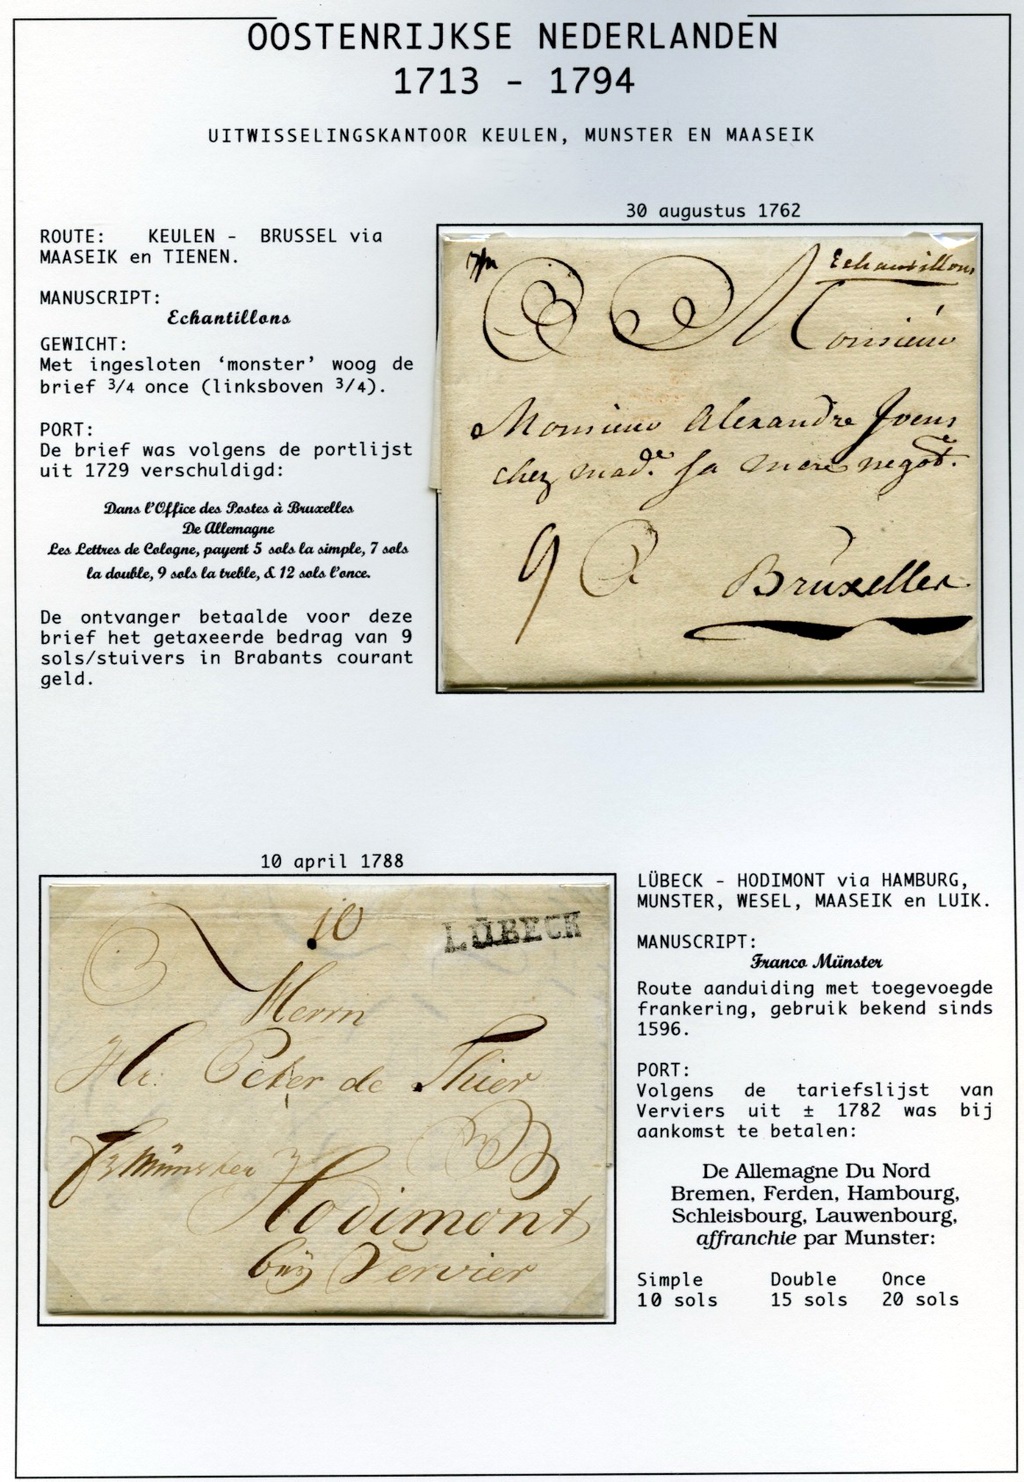 OOSTENRIJKSE NEDERLANDEN
1713 - 1794
UITWISSELINGSKANTOOR KEULEN, MUNSTER EN MAASEIK
30 augustus 1762
ROUTE: KEULEN - BRUSSEL via
MAASEIK en TIENEN.
MANUSCRIPT:
Echantillons
GEWICHT:
Met ingesloten ‘monster’ woog de
brief 3/4 once (linksboven 3/4).
PORT:
De brief was volgens de portlijst
uit 1729 verschuldigd:
Dans l'Office des Postes à Bruxelles
De Allemagne
Les Lettres de Cologne, payent 5 sols la simple, 7 sols
la double, 9 sols la treble, & 12 sols l'once.
De ontvanger betaalde voor deze
brief het getaxeerde bedrag van 9
sols/stuivers in Brabants courant
geld.
Echantillons
Monsieur
Monsieur Alexandre
chez mad.e sa mere negot.e
9
Bruxelles
10 april 1788
10
LÜBECK
Herrn
Hr. Peter de Thier
fr Münster
Hodimont
bey Vervier
LÜBECK - HODIMONT via HAMBURG,
MUNSTER, WESEL, MAASEIK en LUIK.
MANUSCRIPT:
Franco Münster
Route aanduiding met toegevoegde
frankering, gebruik bekend sinds
1596.
PORT:
Volgens de tariefslijst van
Verviers uit ± 1782 was bij
aankomst te betalen:
De Allemagne Du Nord
Bremen, Ferden, Hambourg,
Schleisbourg, Lauwenbourg,
affranchie par Munster:
Simple Double Once
10 sols 15 sols 20 sols